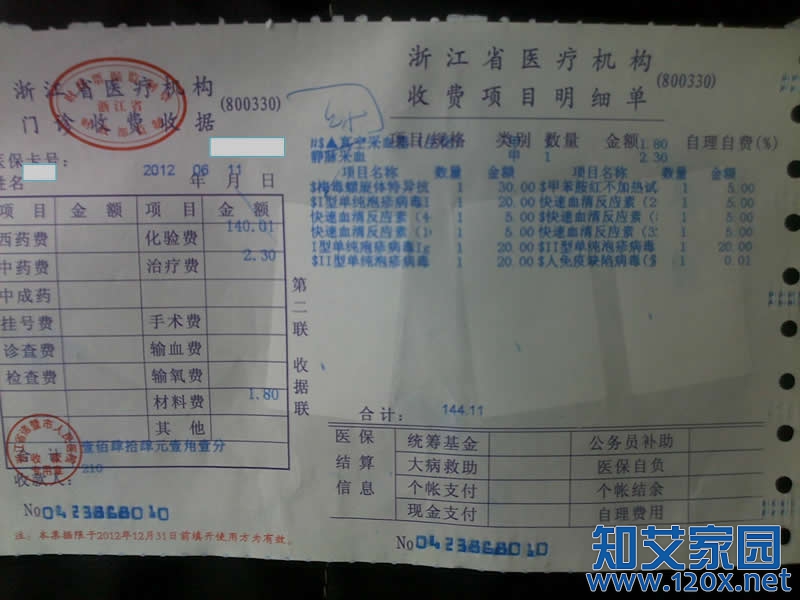 浙江省医疗机构
门诊收费收据
(800330)
浙江省
医保卡号:
姓名
2012 年 06 月 11 日
项 目 金 额 项 目 金 额
西药费 化验费 140.01
中药费 治疗费 2.30
中成药
挂号费 手术费
诊查费 输血费
检查费 输氧费
材料费 1.80
其 他
壹佰肆拾肆元壹角壹分
收款人: 210
No 0423868010
注：本票据限于2012年12月31日前填开使用方为有效。
第二联 收据联
浙江省医疗机构
收费项目明细单
(800330)
项目/规格 类别 数量 金额 自理自费(%)
真空采血 甲 1.80
静脉采血 甲 1 2.30
项目名称 数量 金额 项目名称 数量 金额
$梅毒螺旋体特异抗 1 30.00 $甲苯胺红不加热试 1 5.00
$I型单纯疱疹病毒I 1 20.00 快速血清反应素 (2 1 5.00
快速血清反应素 (4 1 5.00 快速血清反应素 ( 1 5.00
快速血清反应素 (1 1 5.00 快速血清反应素 (3 1 5.00
I型单纯疱疹病毒Ig 1 20.00 $II型单纯疱疹病毒 1 20.00
$II型单纯疱疹病毒 1 20.00 $人免疫缺陷病毒($ 1 0.01
合计: 144.11
医保结算信息
统筹基金 公务员补助
大病救助 医保自负
个帐支付 个帐结余
现金支付 自理费用
No 0423868010
知艾家园
www.120x.net